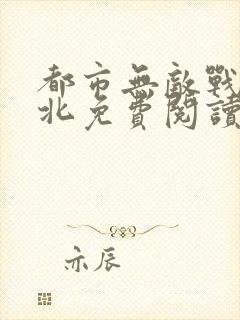 都市無敵戰
北免費閱讀
亦辰